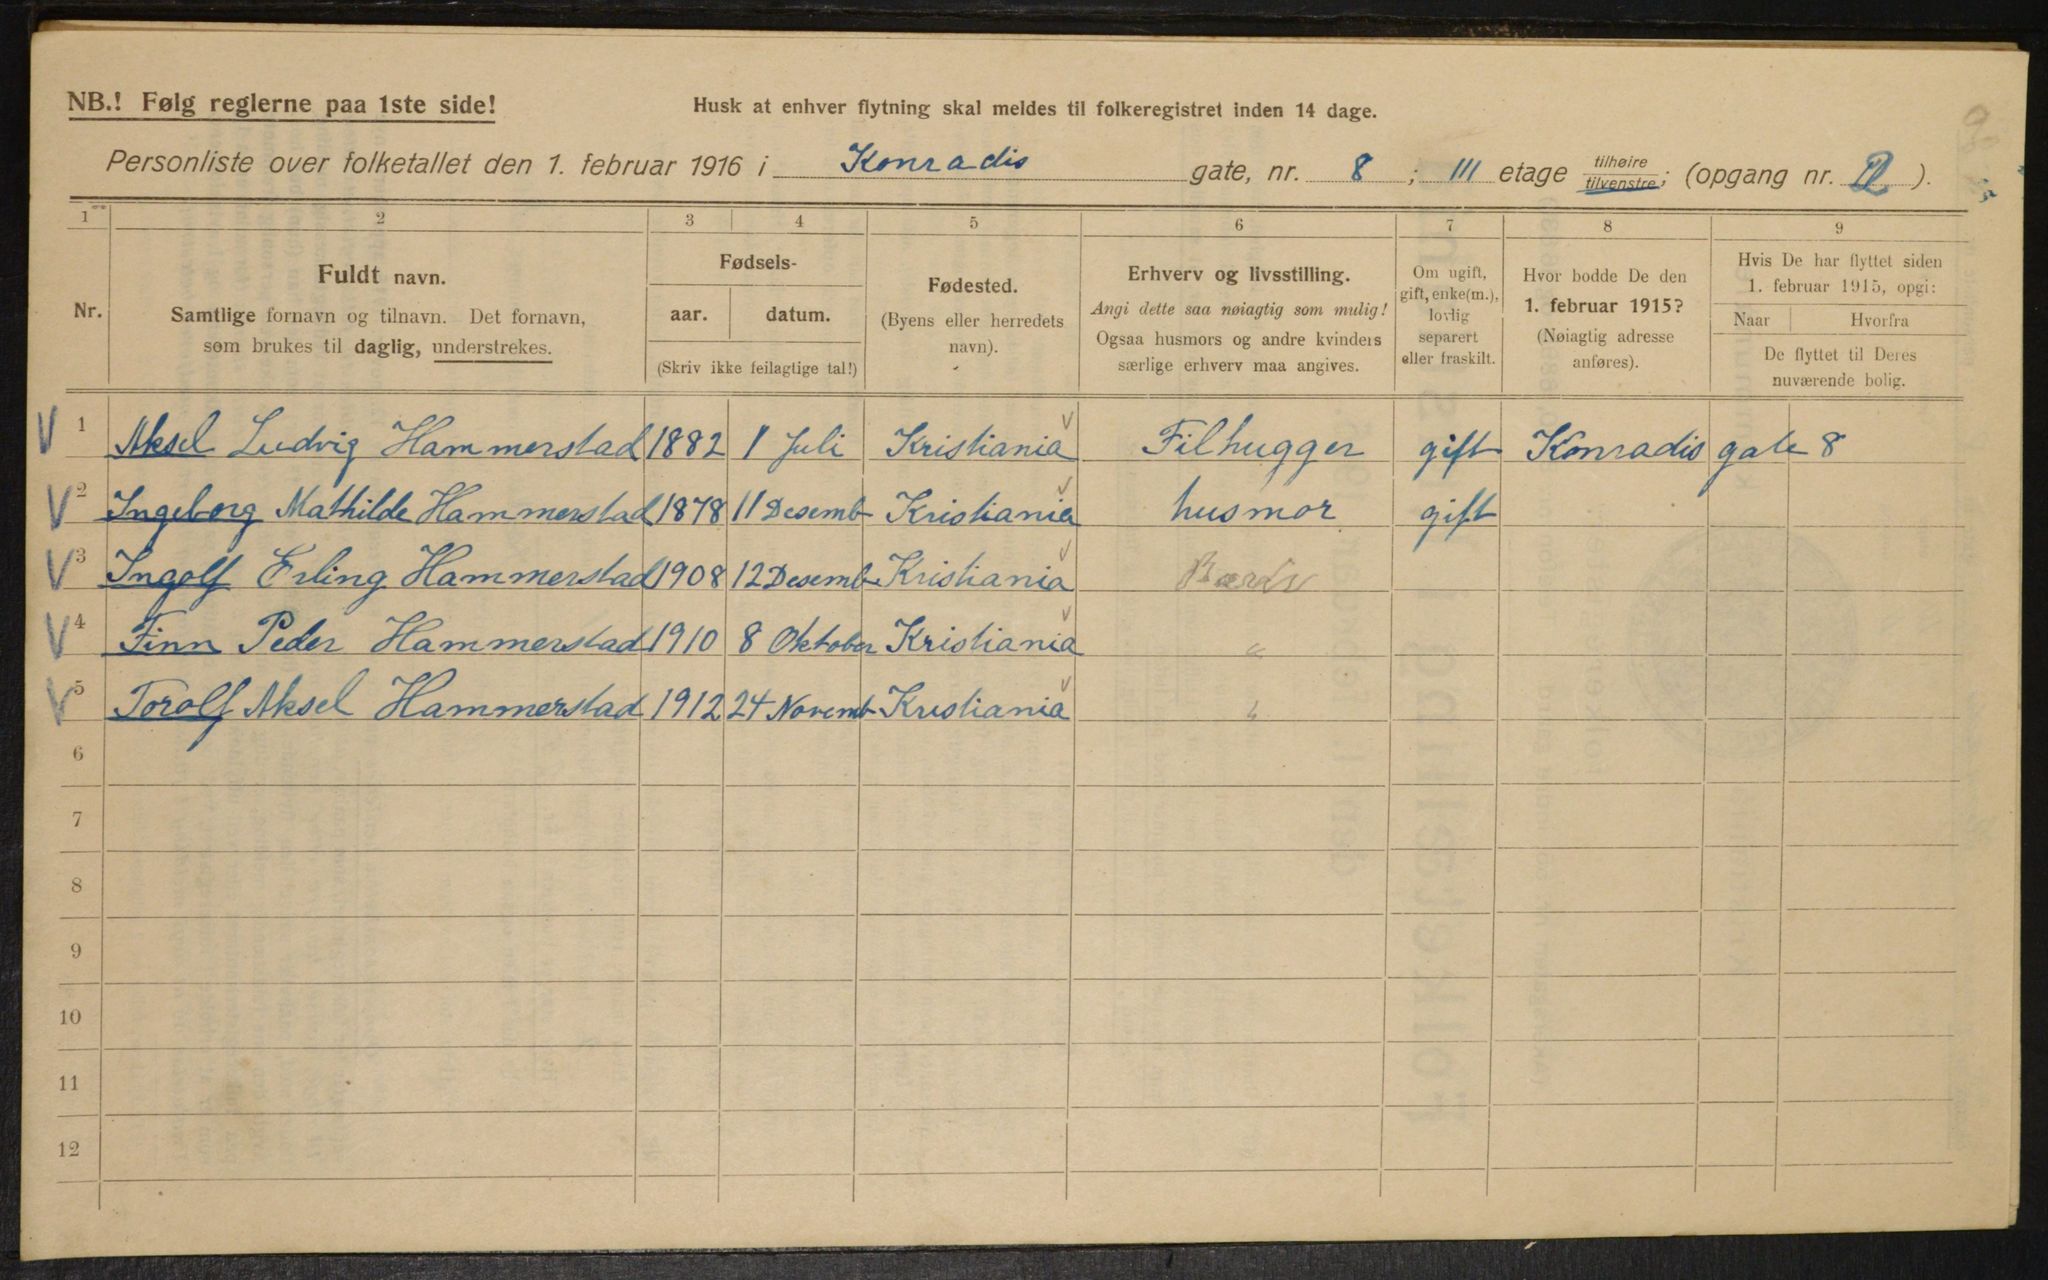 NB.! Følg reglerne paa 1ste side!
Husk at enhver flytning skal meldes til folkeregistret inden 14 dage.
Personliste over folketallet den 1. februar 1916 i Konradis gate, nr. 8 ; III etage tilhøire tilvenstre; (opgang nr. ).
1 2 3 4 5 6 7 8 9
Nr.
Fuldt navn.
Samtlige fornavn og tilnavn. Det fornavn,
som brukes til daglig, understrekes.
Fødsels-
aar. datum.
(Skriv ikke feilagtige tal!)
Fødested.
(Byens eller herredets
navn).
Erhverv og livsstilling.
Angi dette saa nøiagtig som mulig!
Ogsaa husmors og andre kvinders
særlige erhverv maa angives.
Om ugift,
gift, enke(m.),
lovlig
separert
eller fraskilt.
Hvor bodde De den
1. februar 1915?
(Nøiagtig adresse
anføres).
Hvis De har flyttet siden
1. februar 1915, opgi:
Naar Hvorfra
De flyttet til Deres
nuværende bolig.
V 1 Aksel Ludvig Hammerstad 1882 1 Juli Kristiania Filhugger gift Konradis gate 8
V 2 Ingeborg Mathilde Hammerstad 1878 11 Desemb Kristiania husmor gift
V 3 Ingolf Erling Hammerstad 1908 12 Desemb Kristiania
V 4 Finn Peder Hammerstad 1910 8 Oktober Kristiania "
V 5 Torolf Aksel Hammerstad 1912 24 Novemb Kristiania "
6
7
8
9
10
11
12